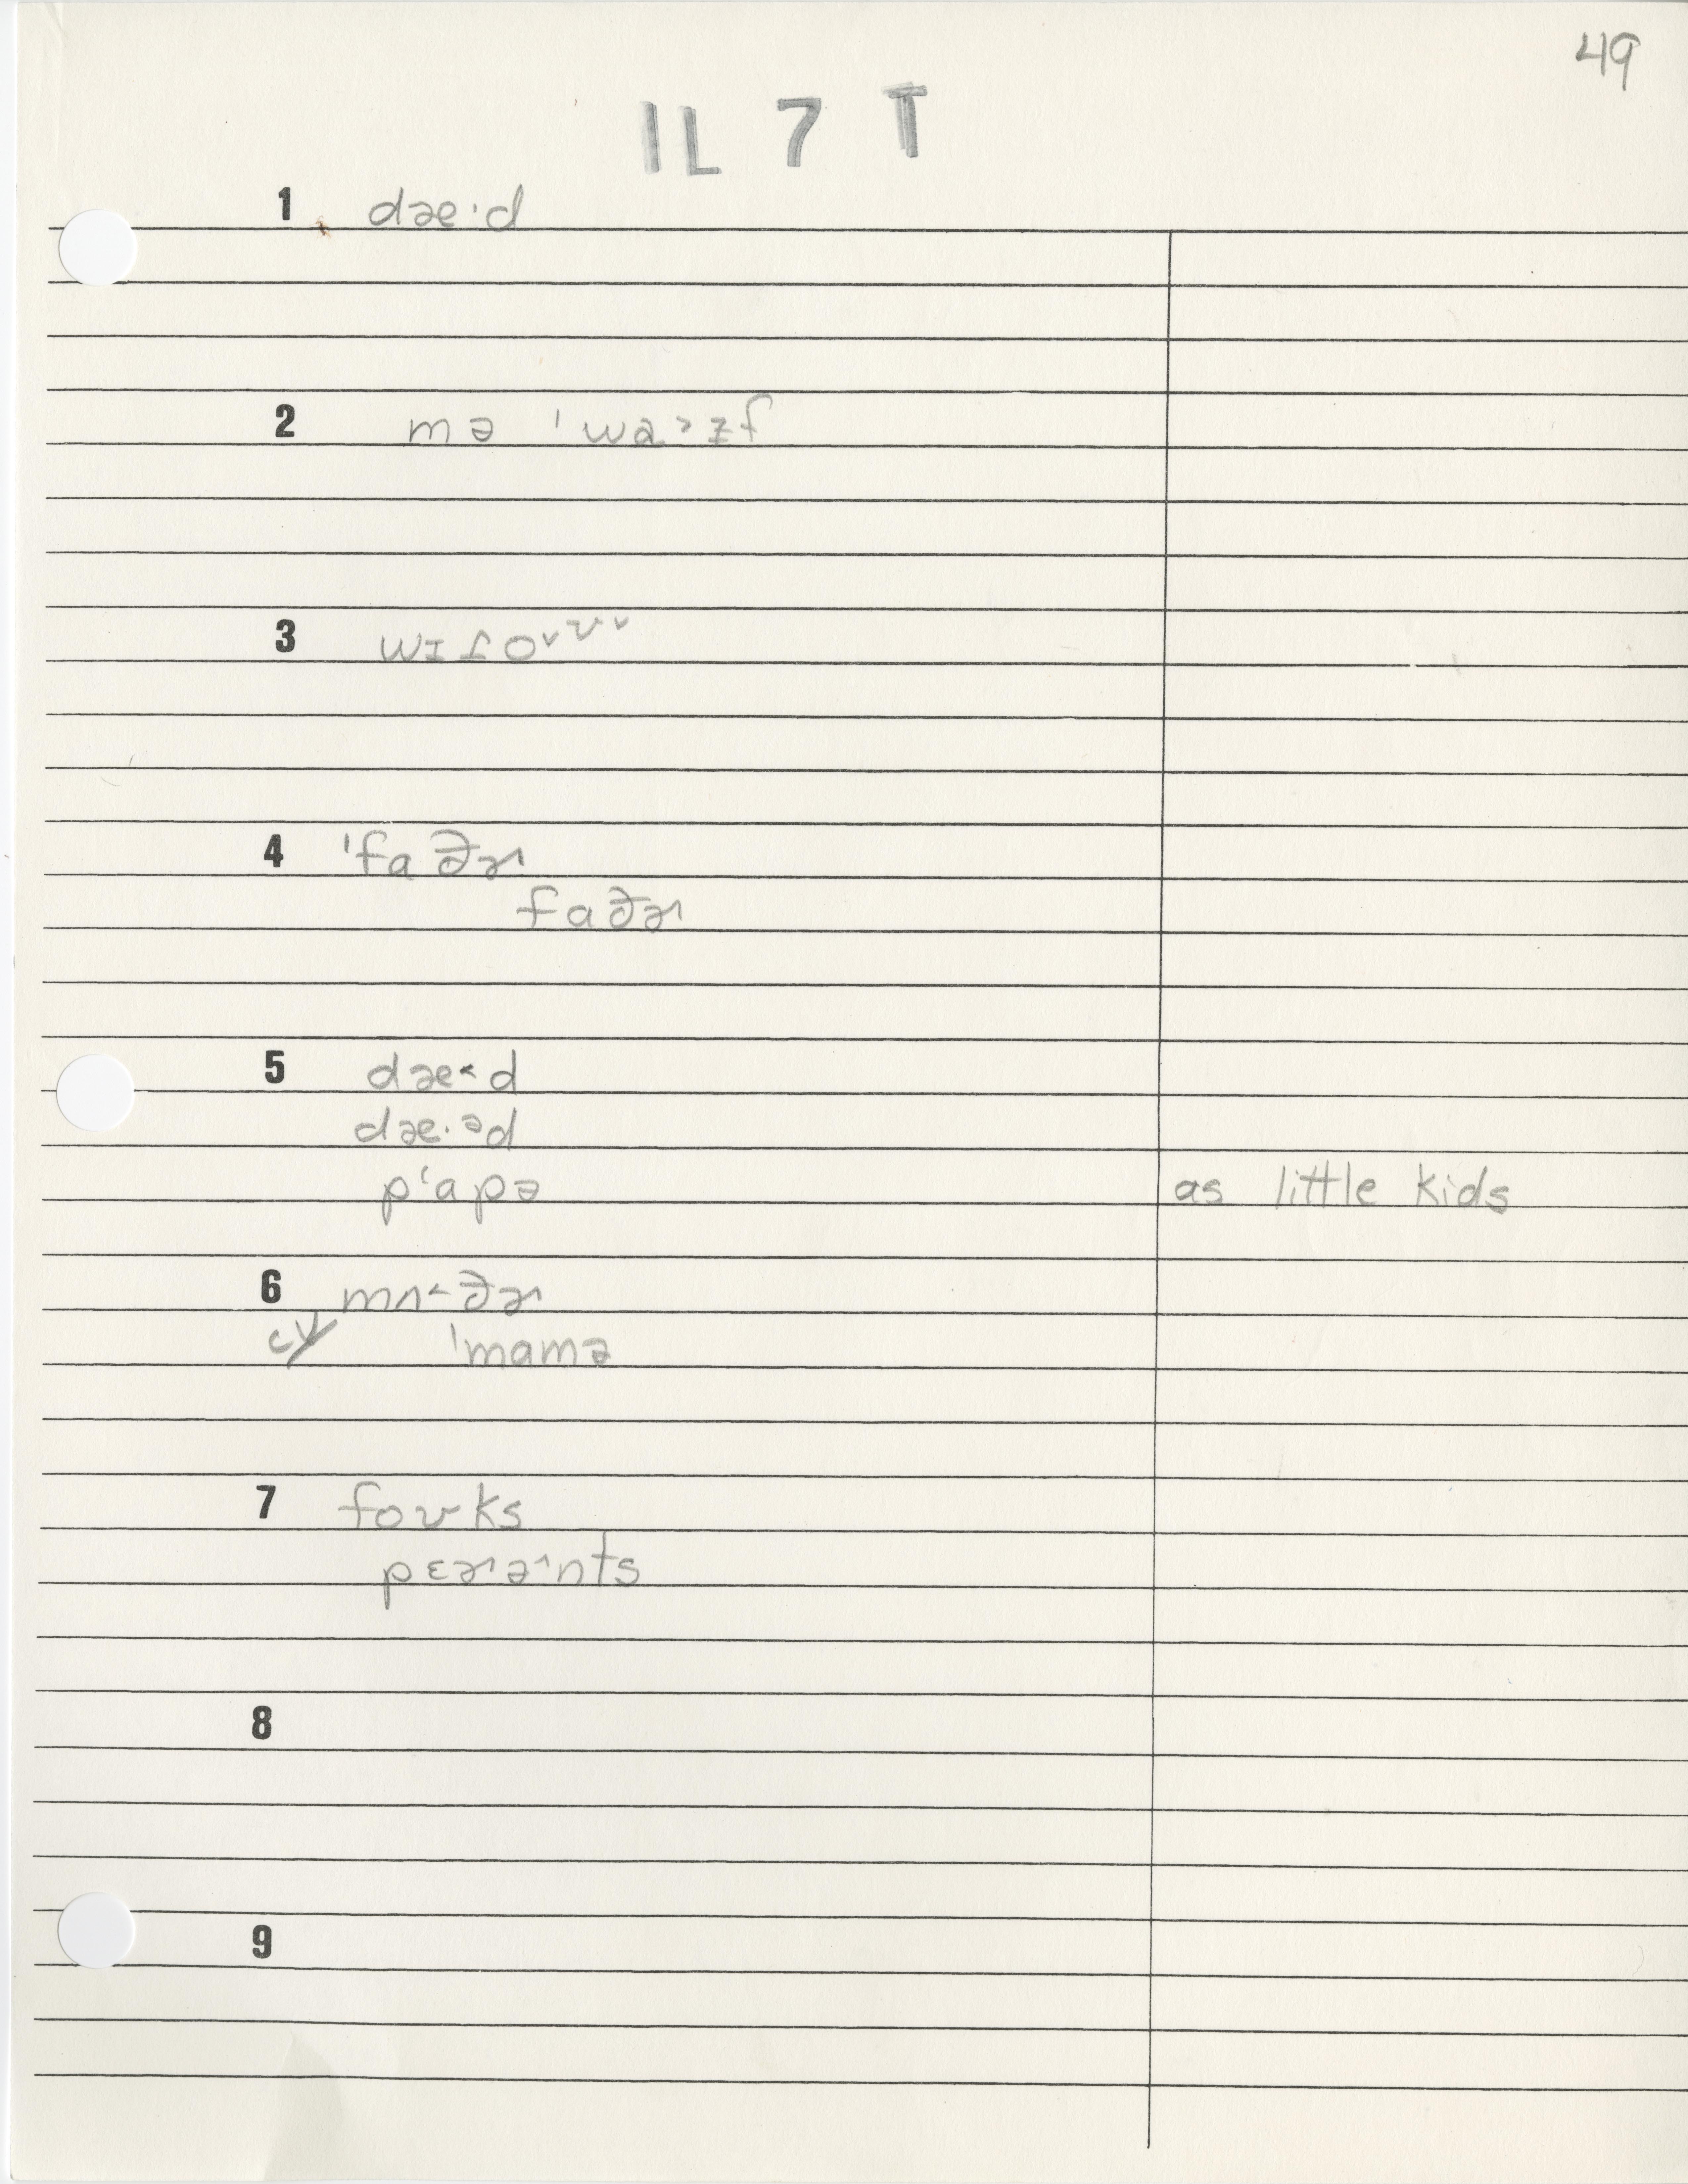 49
1L 7 T
1 dæ·d
2 mə 'wa˃ɪf
3 wɪ
4 'faðɚ
faðɚ
5 dæ˂d
dæ·əd
p'apə as little kids
6 mʌ˂ðɚ
'mamə
7 foʊks
pɛɚə^nts
8
9